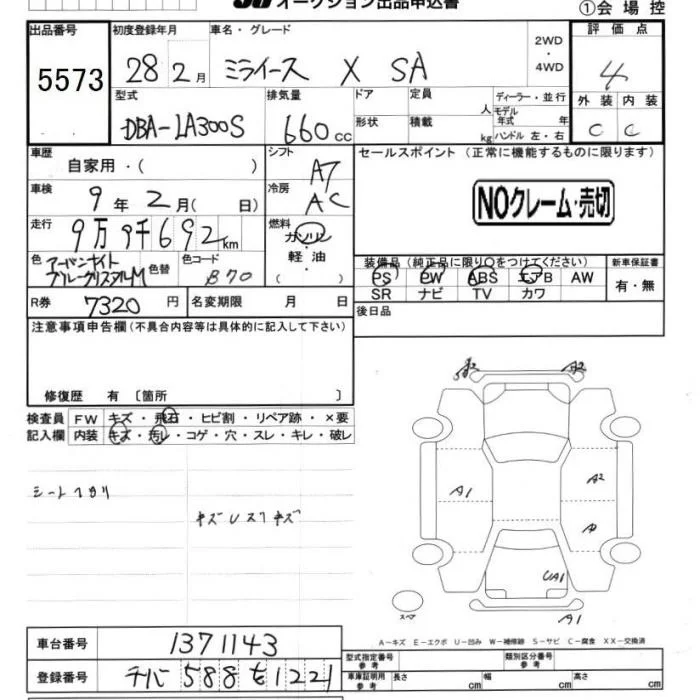 オークション出品申込書
①会場控
出品番号 初度登録年月 車名・グレード 評価点
5573 28 2月 ミライース X SA 2WD ・ 4WD 4
型式 排気量 ドア 定員 人 ディーラー・並行 外装 内装
DBA-LA300S 660cc 形状 積載 kg モデル年式 年 ハンドル 左・右 C C
車歴 自家用・( ) シフト AT セールスポイント (正常に機能するものに限ります)
車検 9年 2月( 日) 冷房 AC NOクレーム・売切
走行 9万9千692km 燃料 ガソリン・軽油( )
色 アーバンナイトブルークリスタルM 色替 色コード B70
装備品(純正品に限り○をつけてください) 新車保証書
PS PW ABS エアB AW 有・無
SR ナビ TV カワ
R券 7320円 名変期限 月 日 後日品
注意事項申告欄(不具合内容等は具体的に記入して下さい)
修復歴 有〔箇所 〕
検査員 FW キズ・飛石・ヒビ割・リペア跡・×要
記入欄 内装 キズ・汚レ・コゲ・穴・スレ・キレ・破レ
A2 A2
A1 A2
A
UA1
スペア A1
キズUスリキズ
A-キズ E-エクボ U-凹み W-補修跡 S-サビ C-腐食 XX-交換済
車台番号 1371143
登録番号 チバ 588 を 1221
型式指定番号 参考 類別区分番号 参考
車庫証明用 参考 長さ cm 幅 cm 高さ cm